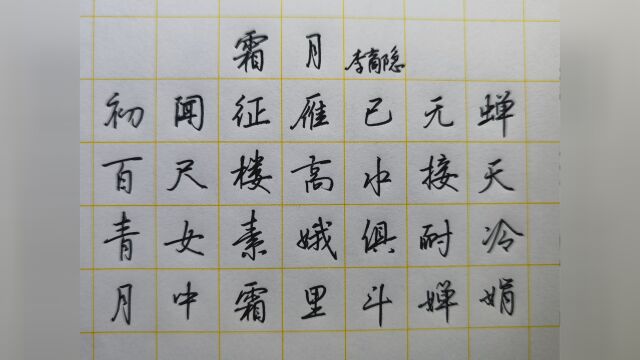 霜月 李商隐
初闻征雁已无蝉
百尺楼高水接天
青女素娥俱耐冷
月中霜里斗婵娟